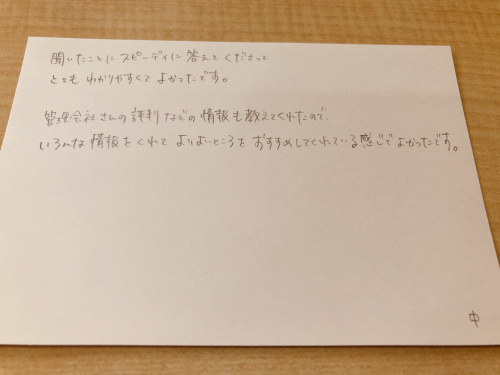 聞いたことにスピーディに答えてくださって
とてもわかりやすくてよかったです。
管理会社さんの評判などの情報も教えてくれたので、
いろんな情報をくれてよりよいところをおすすめしてくれている感じでよかったです。
中